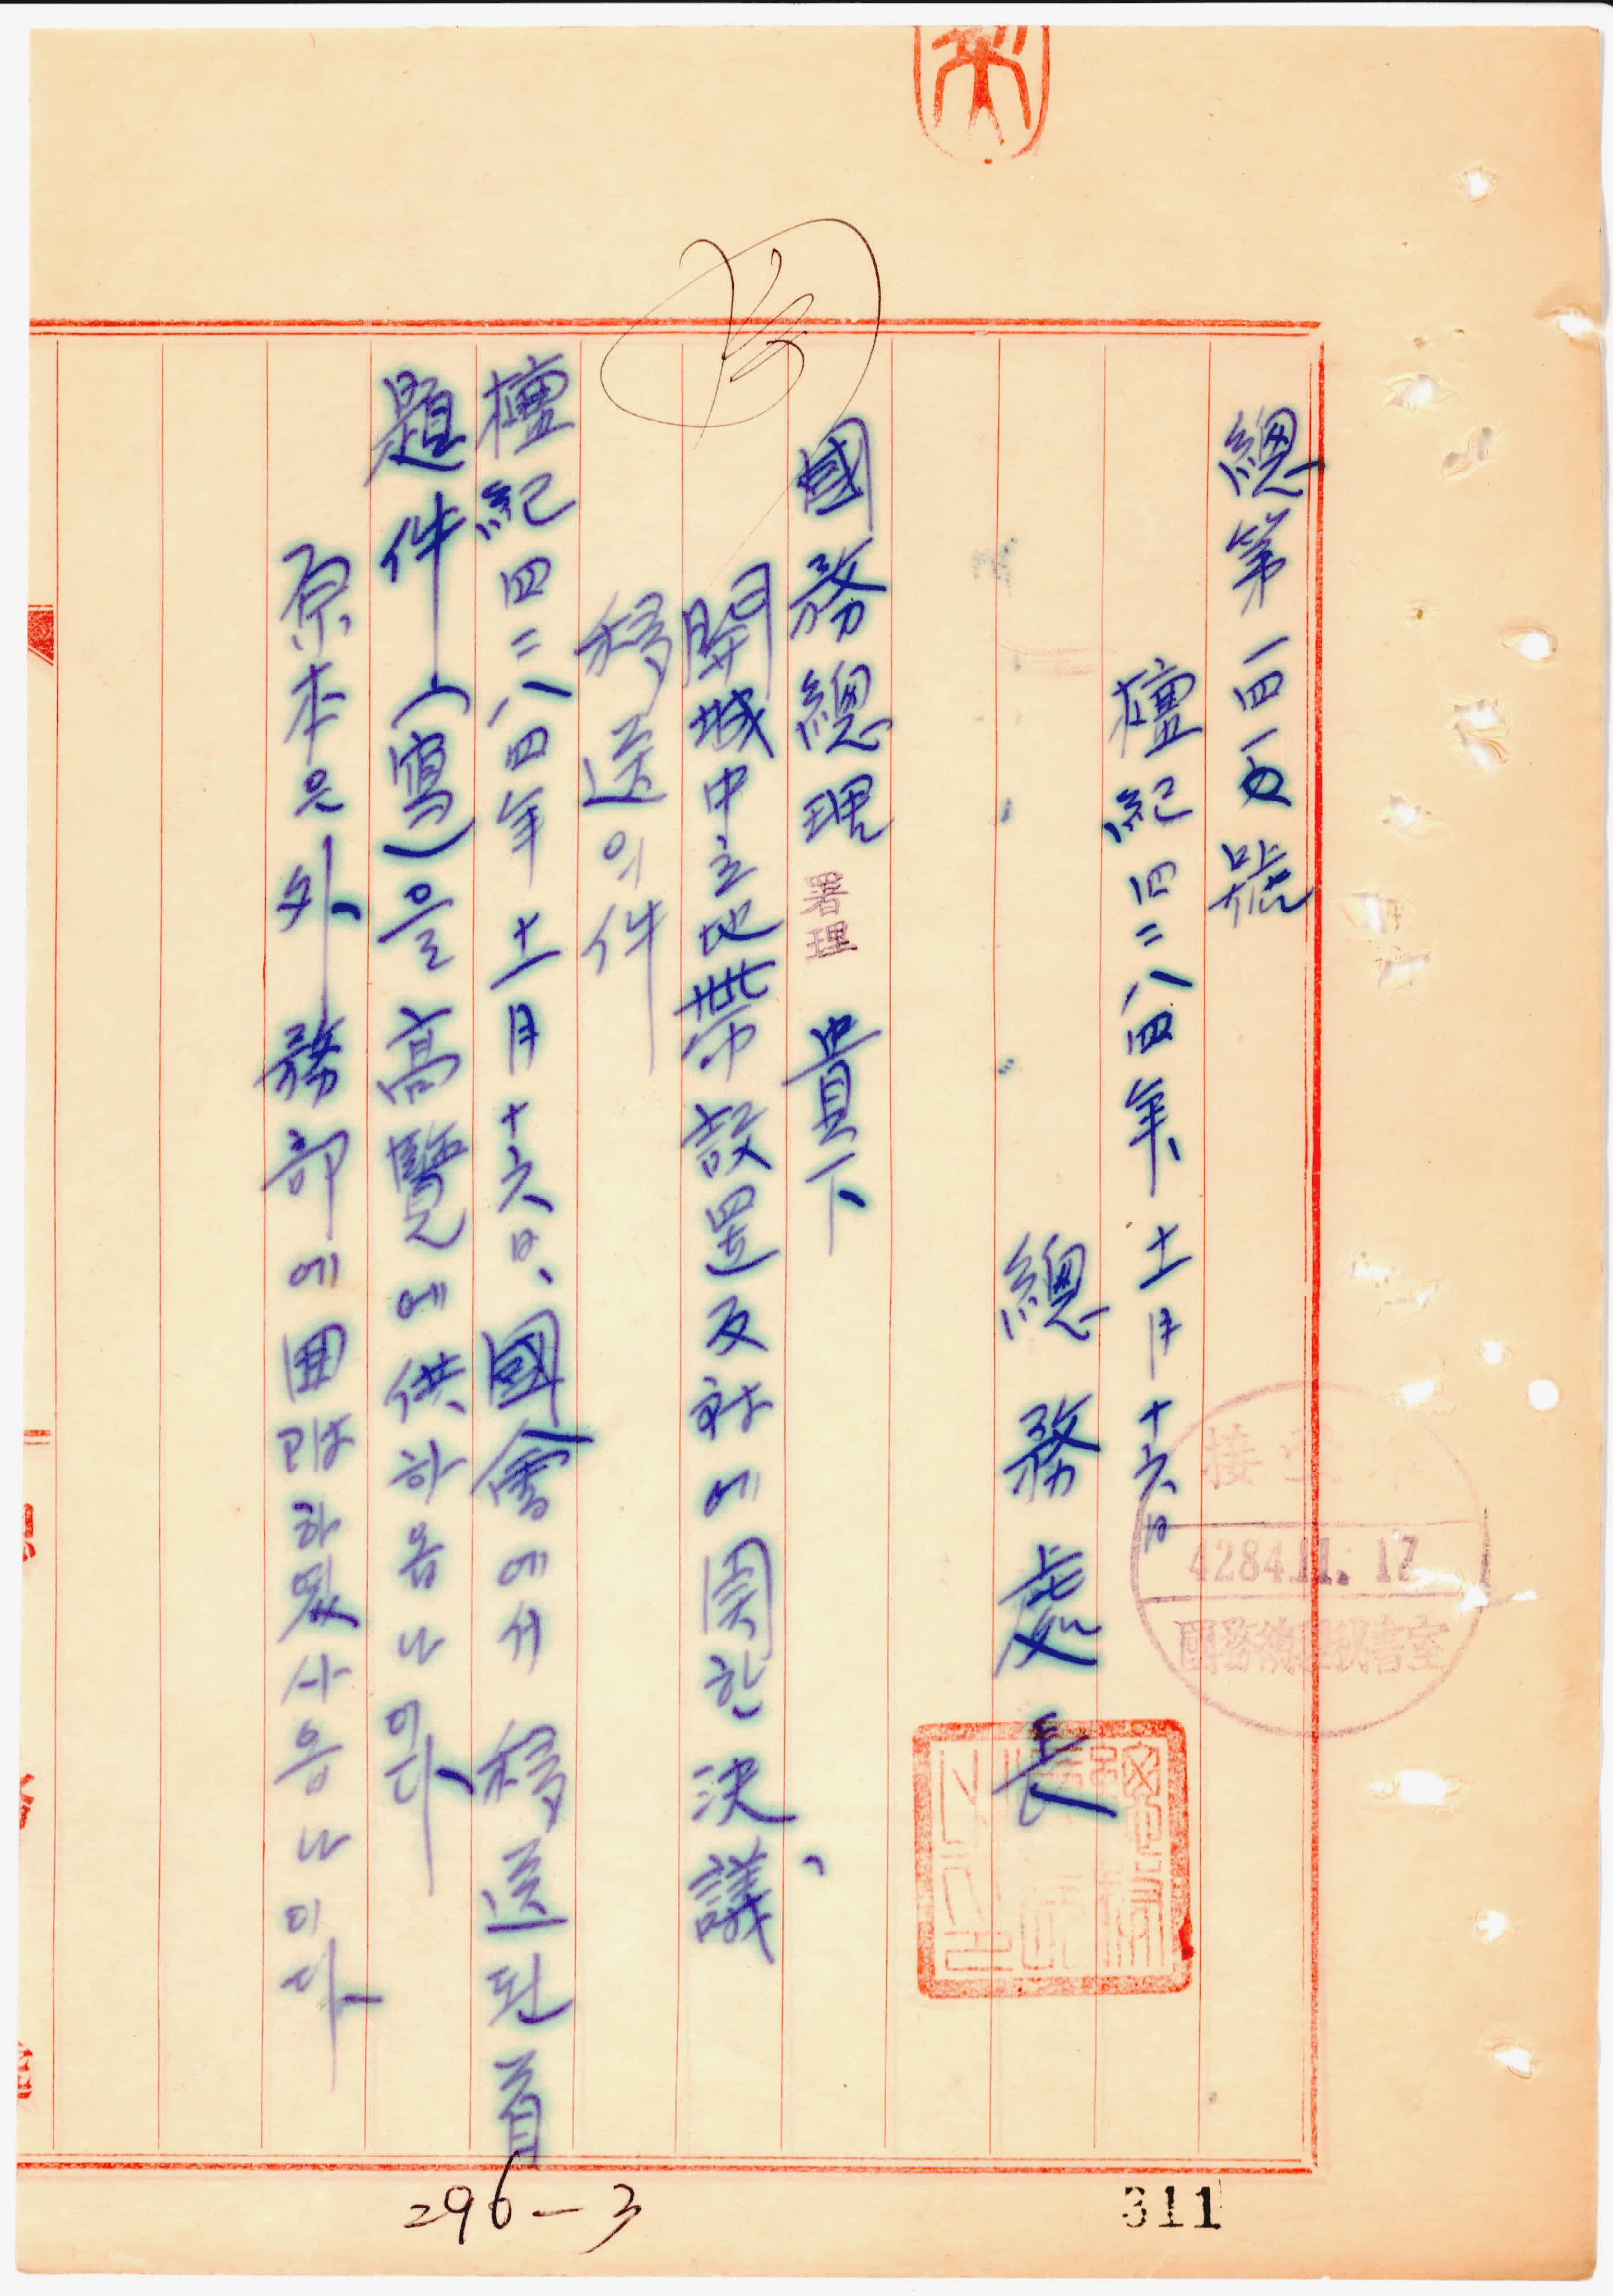 總第一四一五號
檀紀四二八四年、十一月十六日
總務處長
國務總理 署理 貴下
開城中立地帶設置及
에 関한 決議、
移送의件
檀紀四二八四年十一月十六日、國會에서 移送된 首
題件(寫)을 高覽에 供하옵나이다
原本은 外務部에 回 하였사옵나이다
4284.11.17
國務總理秘書室
296-3
311